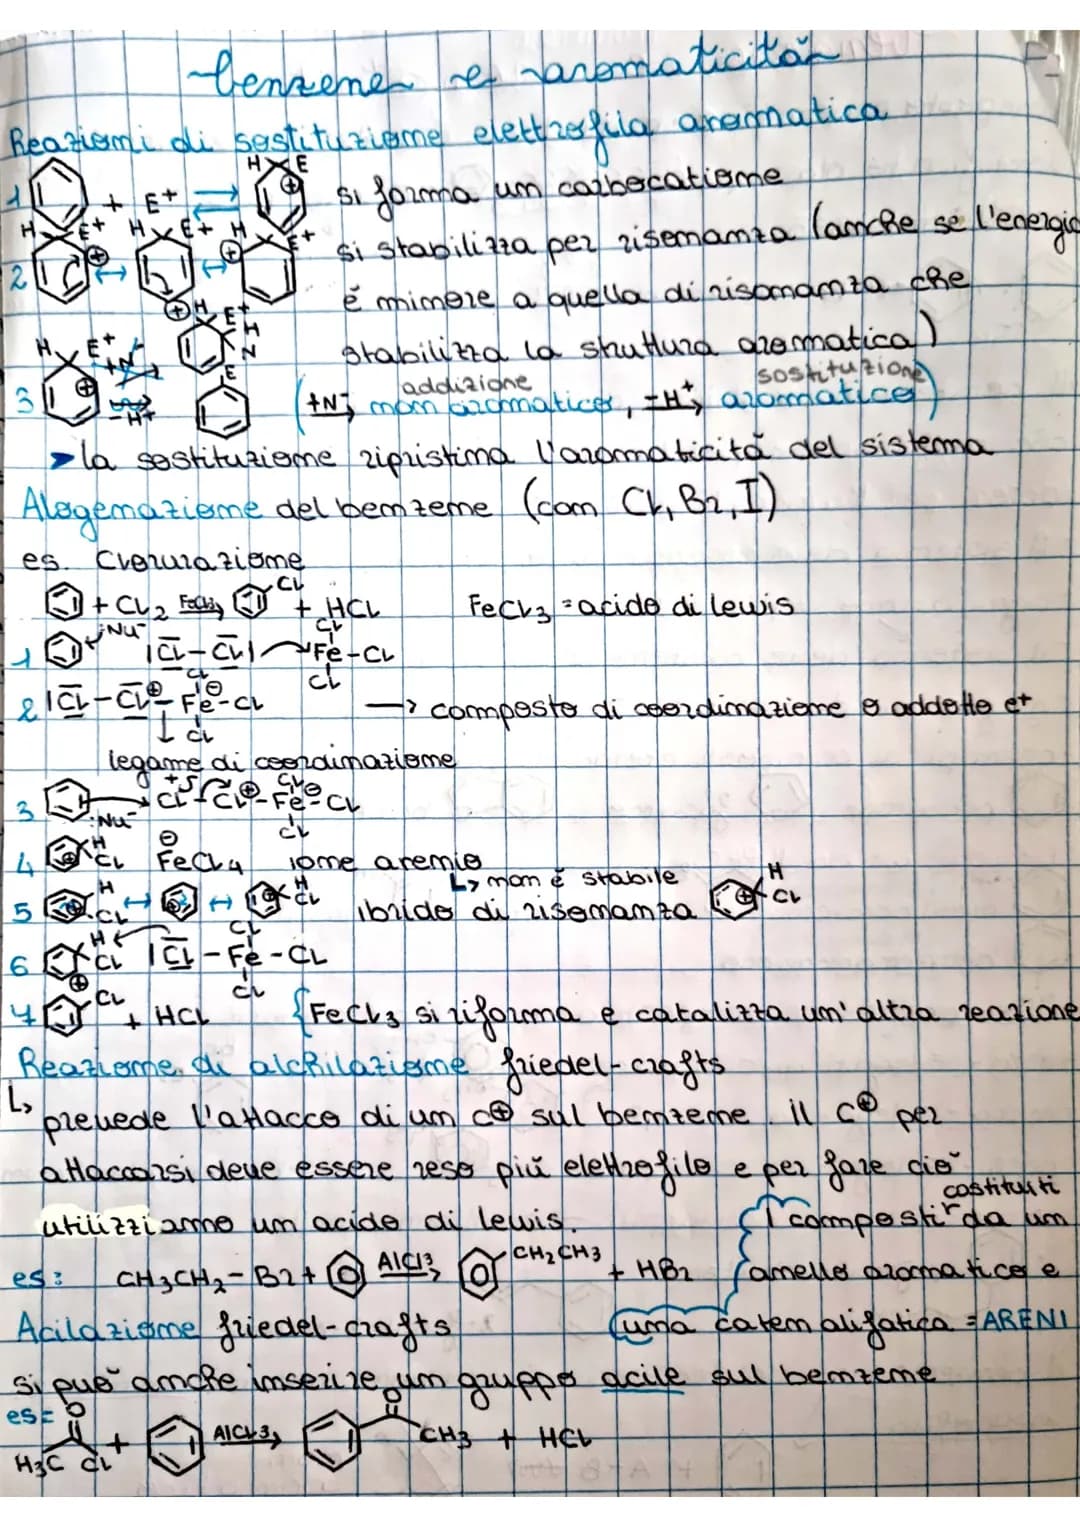 benzene e aromaticità
Reazioni di sostituzione elettrofila aromatica
1 + E+ ⇌ H E ⊕ si forma un carbocatione
2 H E+ ⊕ ↔ H E+ ⊕ ↔ H E+ ⊕ si stabilizza per risonanza (anche se l'energia
è minore a quella di risonanza che
stabilizza la struttura aromatica)
addizione sostituzione
3 H E+ ⊕ +N- -H+ H E+ H N E (+N- non aromatico, -H+ aromatico)
➤ la sostituzione ripristina l'aromaticità del sistema
Alogenazione del benzene (con Cl, Br, I)
es. Clorurazione
+ Cl2 FeCl3 → Cl + HCl FeCl3 = acido di lewis
1 :Nu- |Cl-Cl| Fe-Cl Cl Cl
2 |Cl-Cl⊕-Fe⊖-Cl Cl Cl → composto di coordinazione o addotto e+
legame di coordinazione
3 H :Nu- +δ Cl-Cl⊕-Fe⊖-Cl Cl Cl
4 ⊕ H Cl FeCl4 ⊖ ione arenio
↳ non è stabile
5 ⊕ H Cl ↔ ↔ ⊕ H Cl ibrido di risonanza ⊕ H Cl
6 ⊕ H Cl |Cl-Fe-Cl Cl Cl
7 Cl + HCl {FeCl3 si riforma e catalizza un'altra reazione
Reazione di alchilazione friedel-crafts
↳ prevede l'attacco di un c⊕ sul benzene. il c⊕ per
attaccarsi deve essere reso più elettrofilo e per fare ciò
utilizziamo un acido di lewis.
I composti costituiti da un
es: CH3CH2-Br + AlCl3 → CH2CH3 + HBr anello aromatico e
Acilazione friedel-crafts
una caten alifatica = ARENI
si può anche inserire un gruppo acile sul benzene
es= O H3C Cl + AlCl3 → O CH3 + HCl